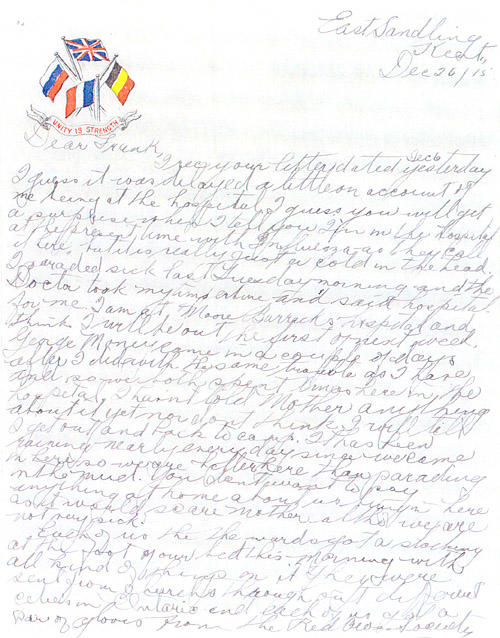 East Sandling
Kent,
Dec 26/15
UNITY IS STRENGTH
Dear Frank
I rec your letter dated Dec 6 yesterday
I guess it was delayed a little on account of
me being at the hospital. I guess you will get
a surprise when I tell you I'm in the hospital
at the present time with Influenza as they call
it here, but it is really just a cold in the head.
I paraded sick last Tuesday morning and the
Doctor took my and said hospital
for me. I am at Moore Barracks hospital and
think I will be out the first of next week.
George came in a couple of days
after I did with the same trouble as I have
and so we both spent Xmas here in the
hospital. I haven't told Mother anything
about it yet nor don't think I will till
I get out and back to camp. It has been
raining nearly every day since we came
in here so we are better here than parading
in the mud. You don't want to say
anything at home about us being in here
as it would scare mother altho we are
not very sick.
Each of us the the wards got a stocking
at the foot of our bed this morning with
all kind of things in it. They were
sent from churches through out different
cities in Ontario and each of us got a
pair of gloves from the Red Cross Society